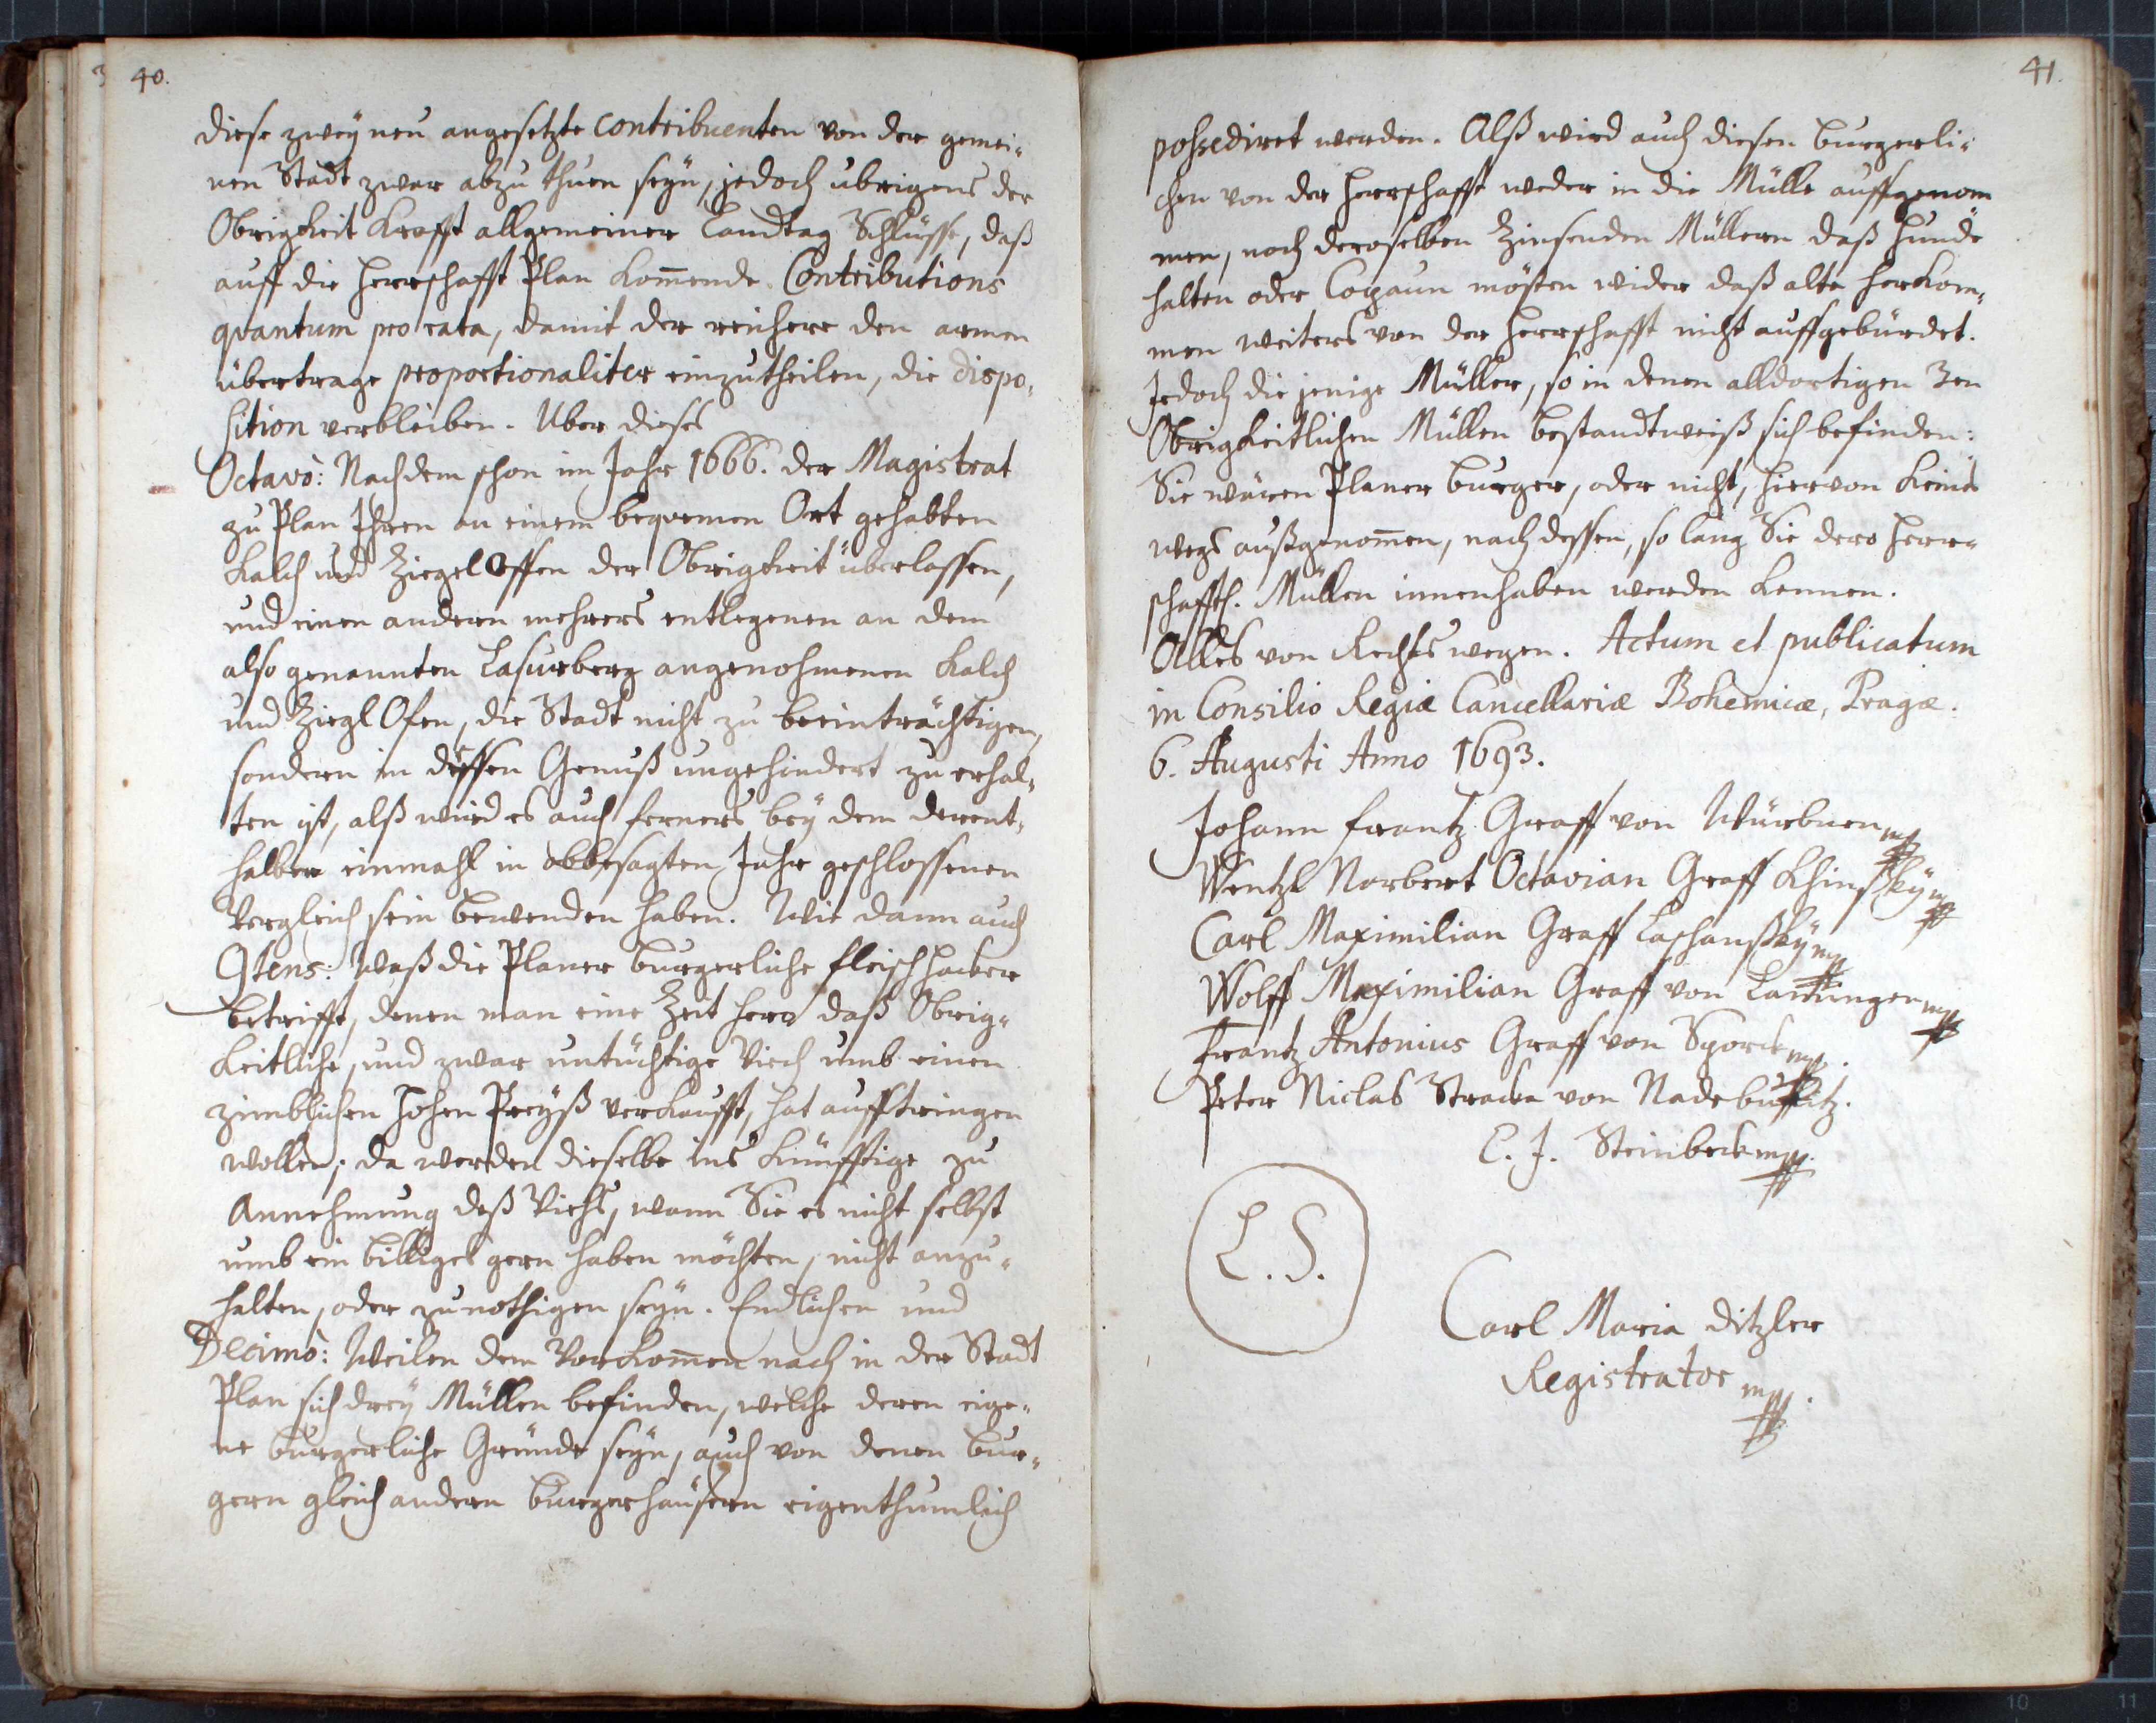 40.
diese zweÿ neu angesetzte Contribuenten von der gemei-
nen Stadt zwar abzu thuen seÿn, jedoch ubrigens der
Obrigkeit Krafft allgemeiner Landtag Schlüsse, daß
auff die Herrschafft Plan kom̄ende Contributions
quantum pro rata, damit der reichere den armen
übertrage proportionaliter einzutheilen, die dispo-
sition verbleiben. Uber dieses
Octavò: Nachdem schon im Jahr 1666. der Magistrat
zu Plan Ihren an einem bequemen Ort gehabten
Kalch und Ziegel Offen der Obrigkeit überlassen,
und einen andern mehrers entlegenen an dem
also genannten Lasurberg angenohmenen Kalch
und Ziegl Ofen, die Stadt nicht zu beeinträchtigen,
sondern in dessen Genuß ungehindert zu erhal-
ten ist, alß wird es auch ferners beÿ dem derent-
halben einmahl in obbesagten Jahr geschlossenen
Vergleich sein bewenden haben. Wie dann auch
9tens: Waß die Planer burgerliche Fleischhacker
betrifft, denen man eine Zeit hero daß Obrig-
keitliche, und zwar untüchtige Viech umb einen
zimblichen hohen Preÿß verkaufft, hat aufftringen
wollen; da werden dieselbe ins künfftige zu
Annehmung deß Viehs, wann Sie es nicht selbst
umb ein billiges gern haben möchten, nicht anzu-
halten, oder zu nothigen seÿn. Endlichen und
Decimò: Weilen dem Vorkom̄en nach in der Stadt
Plan sich dreÿ Müllen befinden, welche deren eige-
ne burgerliche Gründe seÿn, auch von denen Bur-
gern gleich andern Burgerhaüsern eigenthumlich
41.
possediret werden. Alß wird auch diesen burgerli-
chen von der Herrschafft weder in die Mülle auffgenom
men, noch deroselben Zinsenden Müllern daß Hunde
halten oder Capaun mösten wider daß alte Herkom-
men weiters von der Herrschafft nicht auffgebürdet.
Jedoch die jenige Müller, so in denen alldortigen 3en
Obrigkeitlichen Müllen bestandtweiß sich befinden:
Sie wären Planer Burger, oder nicht, hiervon keines
wegs außgenom̄en, nach dessen, so lang Sie dero Herr-
schafftl. Müllen innenhaben werden kennen.
Alles von Rechts wegen. Actum et publicatum
in Consilio Regiæ Cancellariæ Bohemicæ, Pragæ.
6. Augusti Anno 1693.
Johann Frantz Graff von Würbnen mp
Wentzl Norbert Octavian Graff Khinßkÿ mp
Carl Maximilian Graff Laschanßkÿ mp
Wolff Maximilian Graff von mp
Frantz Antonius Graff von Sporck mp.
Peter Niclas Straka von Nadebußitz.
C. J. Steinbeck mp.
L. S.
Carl Maria Ditzler
Registrator mp.